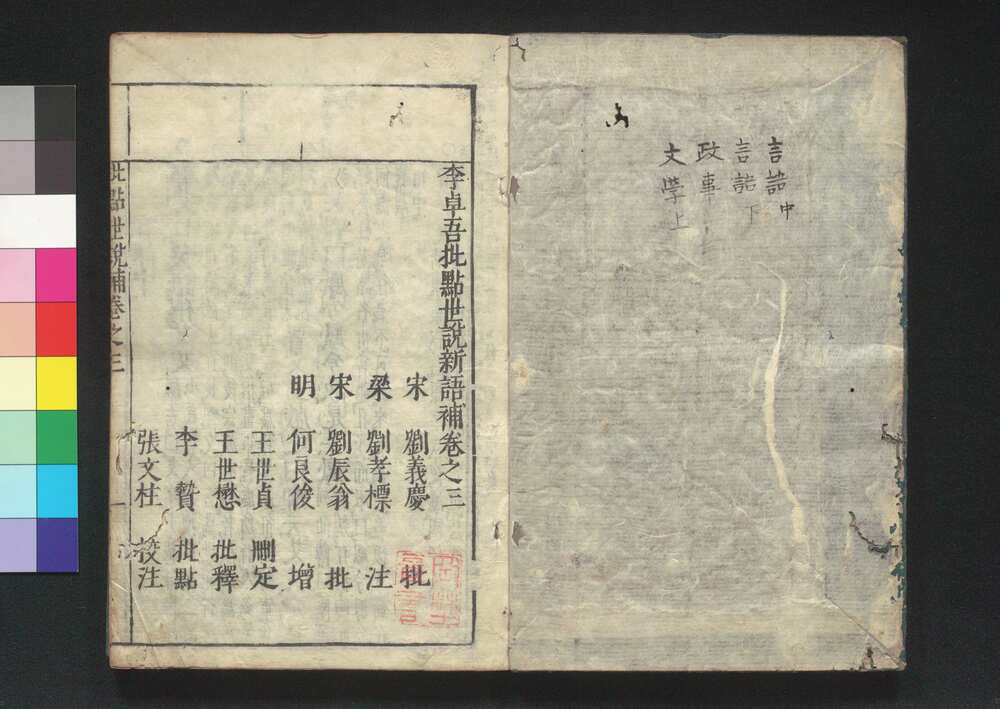 言語中
言語下
政事
文學上
李卓吾批點世說新語補卷之三
宋 劉義慶 批
梁 劉孝標 注
宋 劉辰翁 批
明 何良俊 增
王世貞 刪定
王世懋 批釋
李贄 批點
張文柱 校注
批點世說補卷之三
一